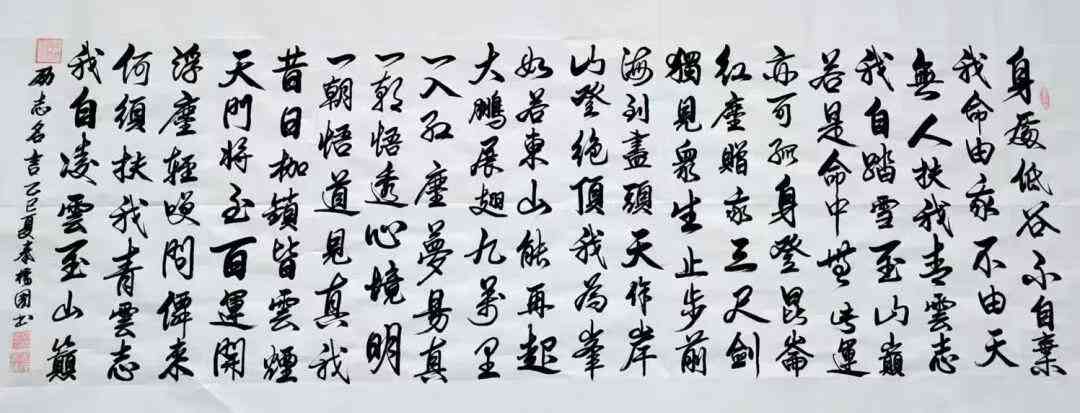 身處低谷不自棄
我命由我不由天
無人扶我青雲志
我自踏雪至山巔
若是命中無此運
亦可孤身登昆崙
紅塵贈我三尺劍
獨見眾生止步前
海到盡頭天作岸
山登絕頂我為峯
如若東山能再起
大鵬展翅九萬里
一入紅塵夢易真
一朝悟透心境明
一朝悟道見真我
昔日枷鎖皆雲煙
天門將至百運開
浮塵輕嘆問僊來
何須扶我青雲志
我自凌雲至山巔
励志名言 乙巳夏